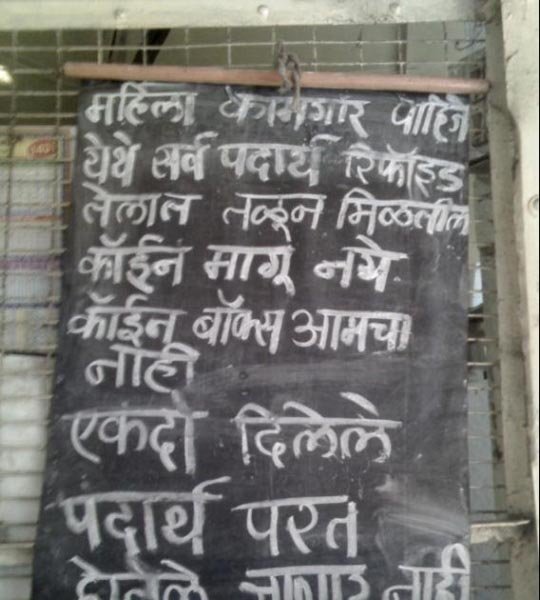 महिला कामगार पाहिजे
येथे सर्व पदार्थ रिफॉइंड
तेलात तळून मिळतील
कॉईन मागू नये
कॉईन बॉक्स आमचा
नाही
एकदा दिलेले
पदार्थ परत
घेतले जाणार नाही